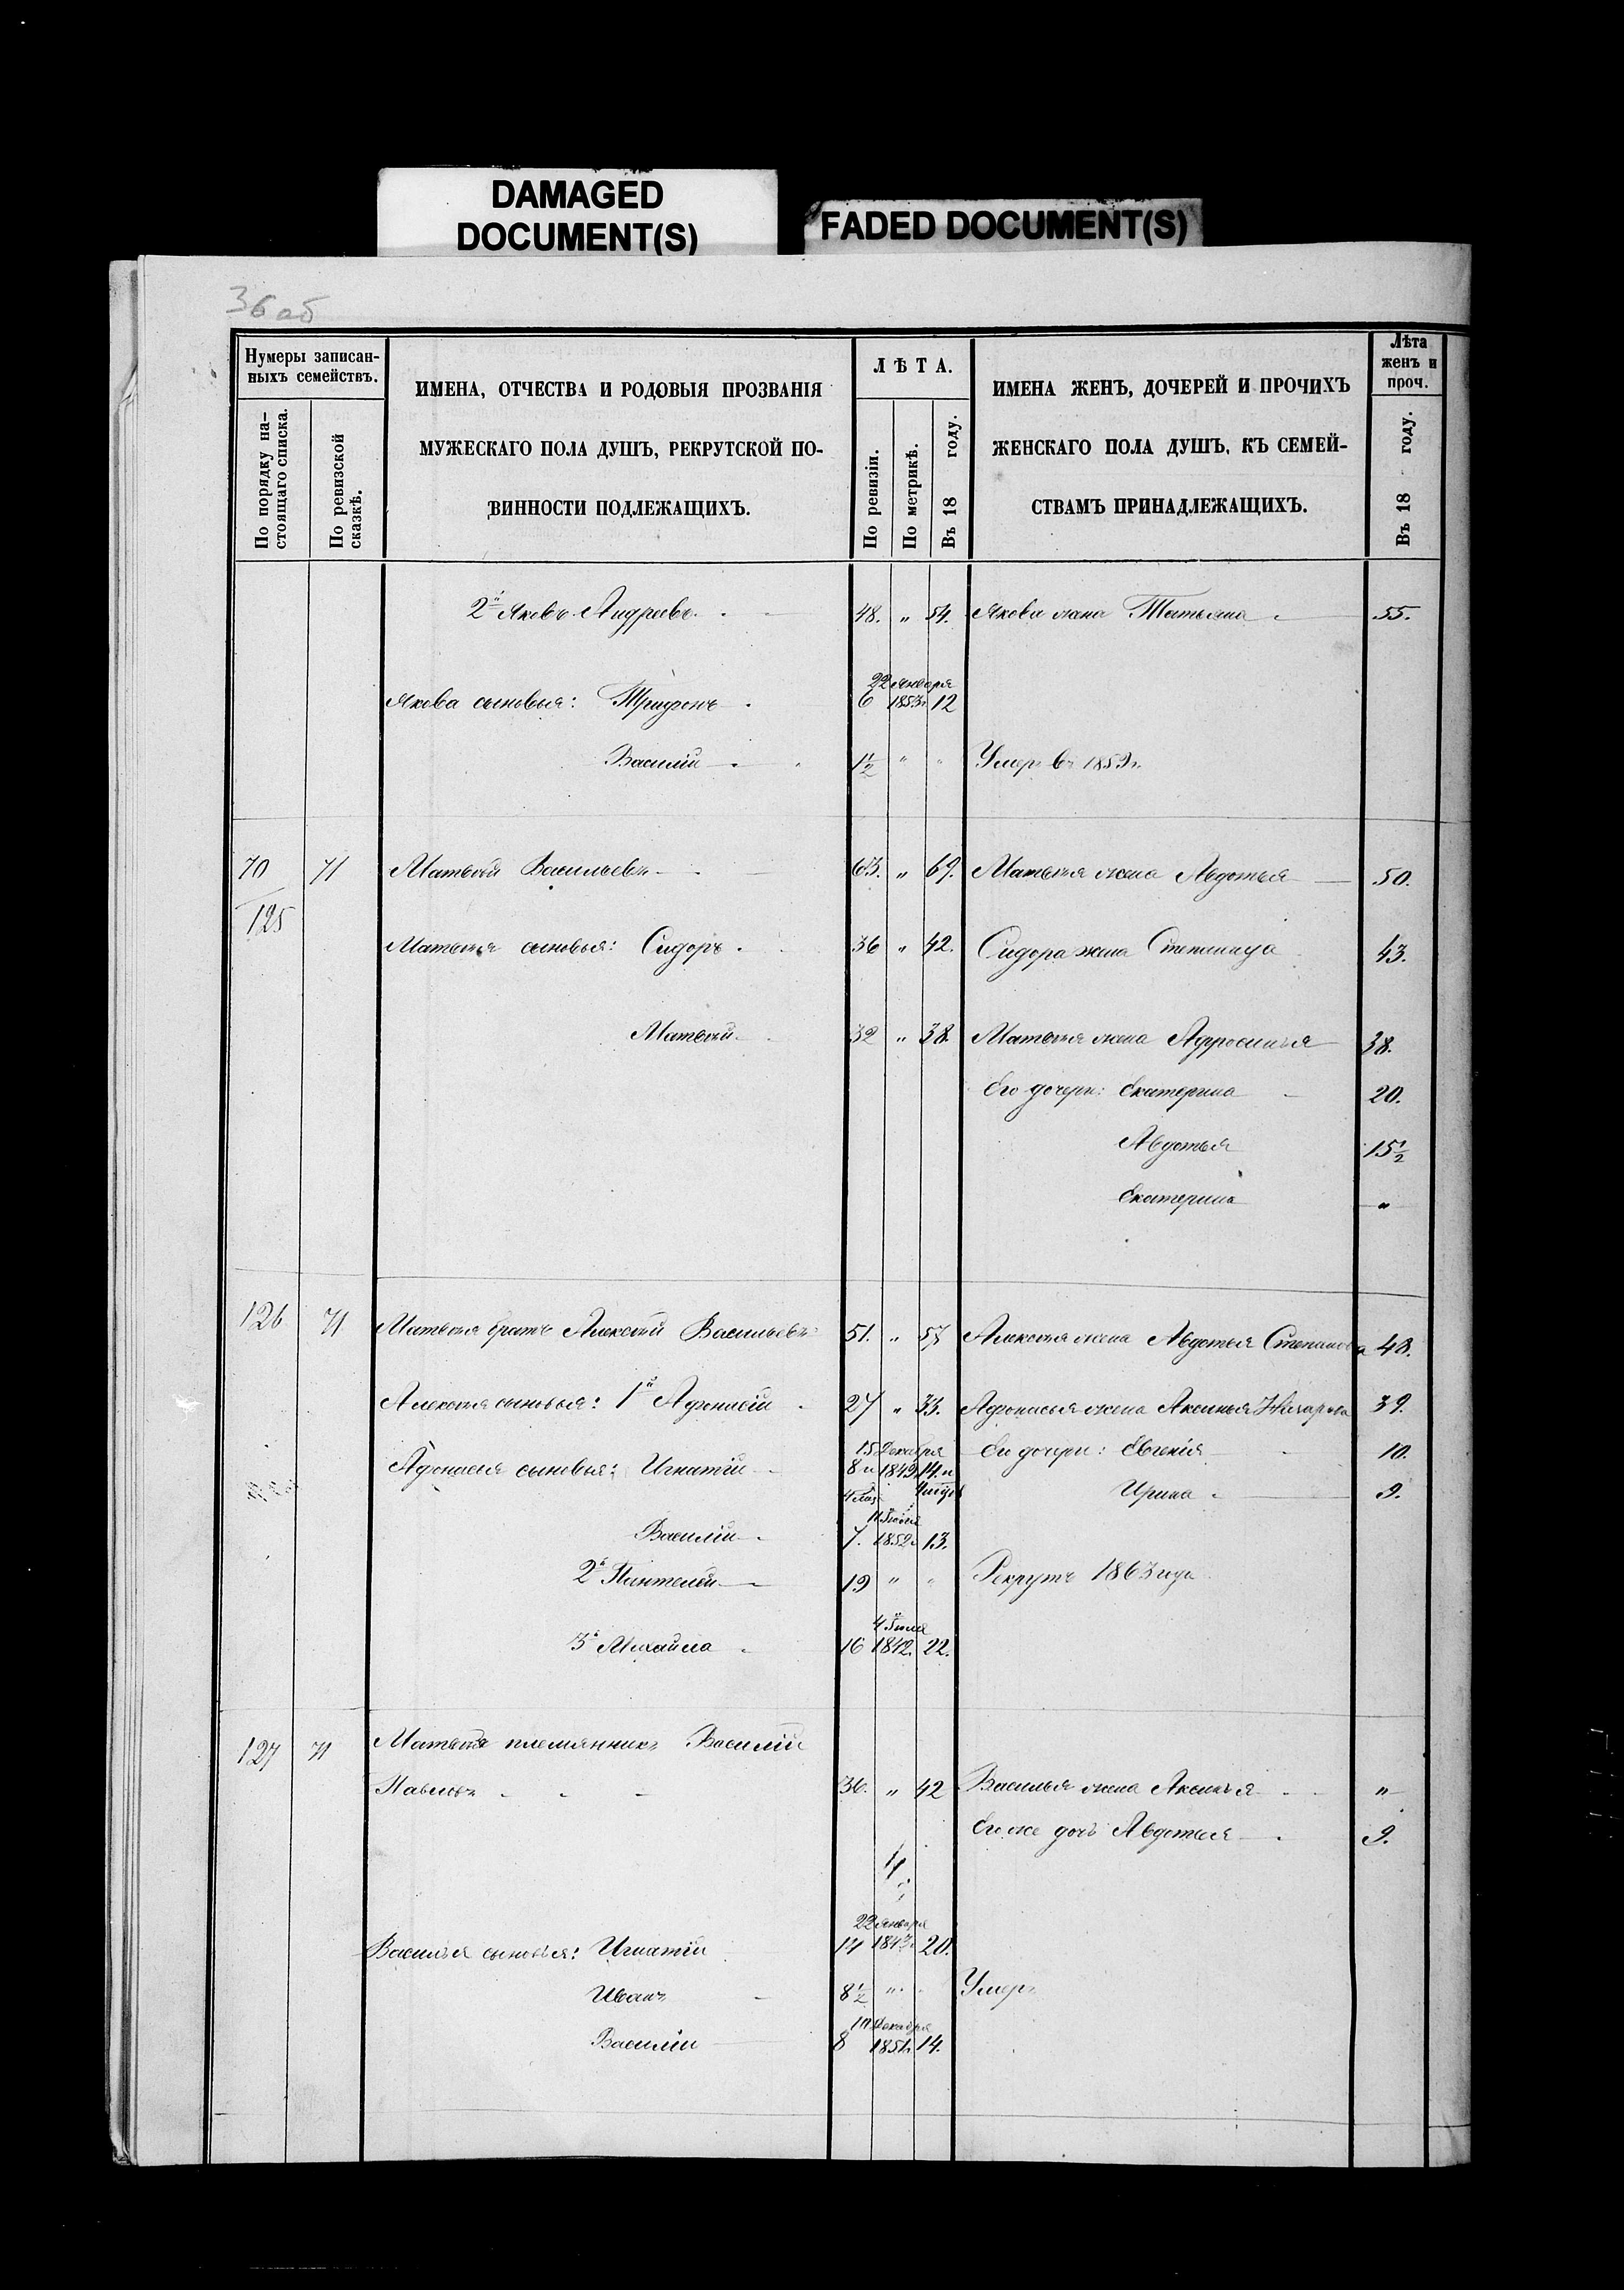 DAMAGED
DOCUMENT(S)
FADED DOCUMENT(S)
36 об
Нумеры записан-
ныхъ семействъ.
По порядку на-
стоящаго списка.
По ревизской
сказкѣ.
ИМЕНА, ОТЧЕСТВА И РОДОВЫЯ ПРОЗВАНІЯ
МУЖЕСКАГО ПОЛА ДУШЪ, РЕКРУТСКОЙ ПО-
ВИННОСТИ ПОДЛЕЖАЩИХЪ.
ЛѢТА.
По ревизіи.
По метрикѣ.
Въ 18 году.
ИМЕНА ЖЕНЪ, ДОЧЕРЕЙ И ПРОЧИХЪ
ЖЕНСКАГО ПОЛА ДУШЪ, КЪ СЕМЕЙ-
СТВАМЪ ПРИНАДЛЕЖАЩИХЪ.
Лѣта
женъ и
проч.
Въ 18 году.
2й Яковъ Андреевъ. 48. " 54. Якова жена Татьяна 55.
22 января
Якова сыновья: Трифонъ 6 1853г. 12
Василій 1½ " " Умеръ въ 1859г.
70 71 Матвѣй Васильевъ 63. " 69. Матвѣя жена Авдотья 50.
125
Матвѣя сыновья: Сидоръ 36 " 42. Сидора жена Степанида 43.
Матвѣй 32 " 38. Матвѣя жена Афросинья 38.
Его дочери: Екатерина 20.
Авдотья 15½
Екатерина "
126 71 Матвѣя братъ Алексѣй Васильевъ 51. " 57 Алексѣя жена Авдотья Степанова 48.
Алексѣя сыновья: 1й Афонасій 27 " 33. Афонасья жена Аксинья 39.
15 Декабря
Афонасья сыновья: Игнатій 8 и 1849. 14. и Его дочери: Евгенія 10.
Ирина 9.
11 Іюля
Василій 7. 1852г. 13.
2й Пантелей 19 " " Рекрутъ 1863 года
4 Іюля
3й Михайла 16 1842. 22.
127 71 Матвѣя племянникъ Василій
Павловъ 36. " 42 Василья жена Аксинья "
Его же дочь Авдотья 9.
4
22 января
Василья сыновья: Игнатій 14 20.
Иванъ 8½ " Умеръ
Декабря
Василій 8 1851г. 14.